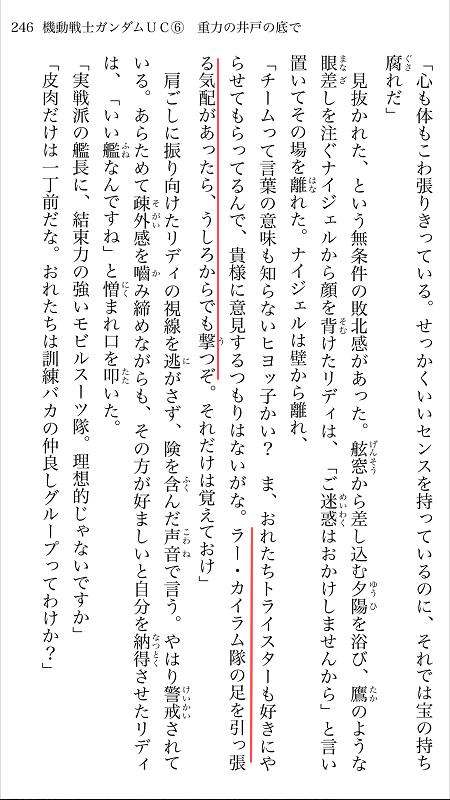 246 機動戦士ガンダムUC⑥ 重力の井戸の底で
「心も体もこわ張りきっている。せっかくいいセンスを持っているのに、それでは宝の持ち
腐れだ」
見抜かれた、という無条件の敗北感があった。舷窓から差し込む夕陽を浴び、鷹のような
眼差しを注ぐナイジェルから顔を背けたリディは、「ご迷惑はおかけしませんから」と言い
置いてその場を離れた。ナイジェルは壁から離れ、
「チームって言葉の意味も知らないヒヨッ子かい？ ま、おれたちトライスターも好きにや
らせてもらってるんで、貴様に意見するつもりはないがな。ラー・カイラム隊の足を引っ張
る気配があったら、うしろからでも撃つぞ。それだけは覚えておけ」
肩ごしに振り向けたリディの視線を逃がさず、険を含んだ声音で言う。やはり警戒されて
いる。あらためて疎外感を嚙み締めながらも、その方が好ましいと自分を納得させたリディ
は、「いい艦なんですね」と憎まれ口を叩いた。
「実戦派の艦長に、結束力の強いモビルスーツ隊。理想的じゃないですか」
「皮肉だけは一丁前だな。おれたちは訓練バカの仲良しグループってわけか？」